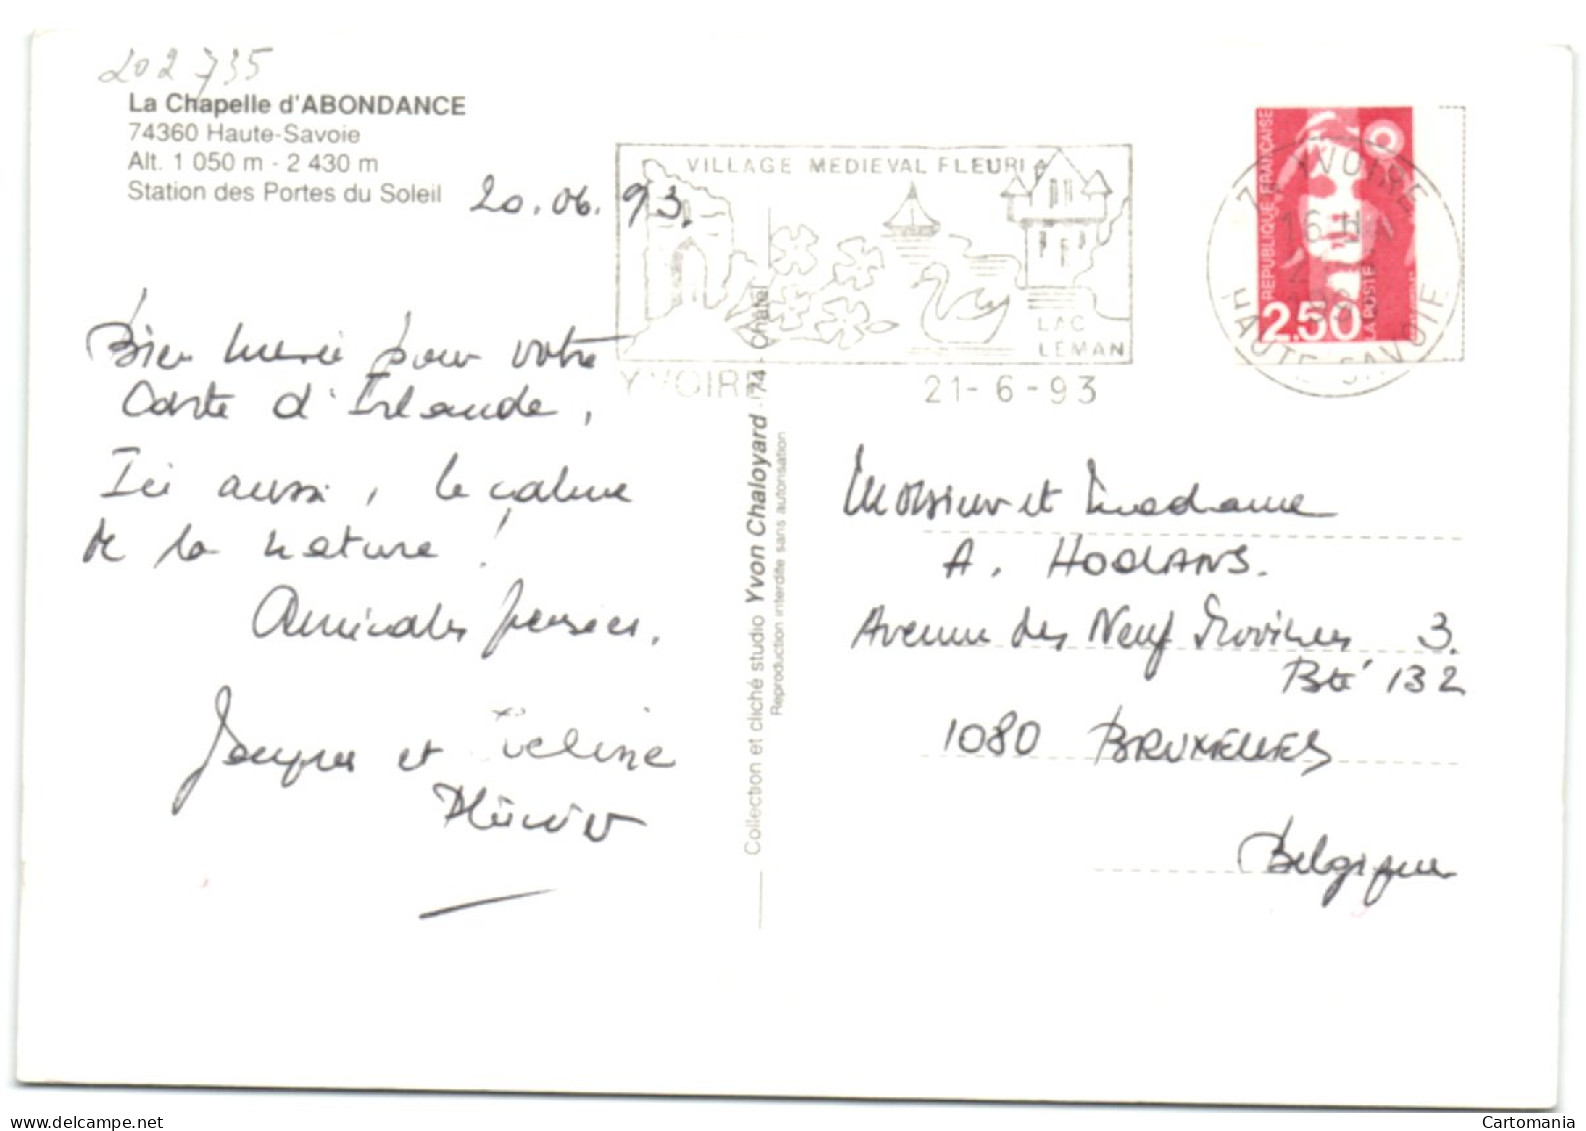 202 735
La Chapelle d'ABONDANCE
74360 Haute-Savoie
Alt. 1 050 m - 2 430 m
Station des Portes du Soleil
20.06.93.
Bien merci pour votre
Carte d'Irlande,
Ici aussi, le calme
de la nature !
Amicales pensées.
Jacques et Eveline
VILLAGE MEDIEVAL FLEURI
LAC
LEMAN
YVOIRE
21-6-93
REPUBLIQUE FRANÇAISE
LA POSTE
2,50
74 YVOIRE
16 H
HAUTE-SAVOIE
Collection et cliché studio Yvon Chaloyard - 74 - Chatel
Reproduction interdite sans autorisation
Monsieur et Madame
A. HOOLANS.
Avenue des Neuf Provinces 3.
Bte 132
1080 BRUXELLES
Belgique
Cartomania